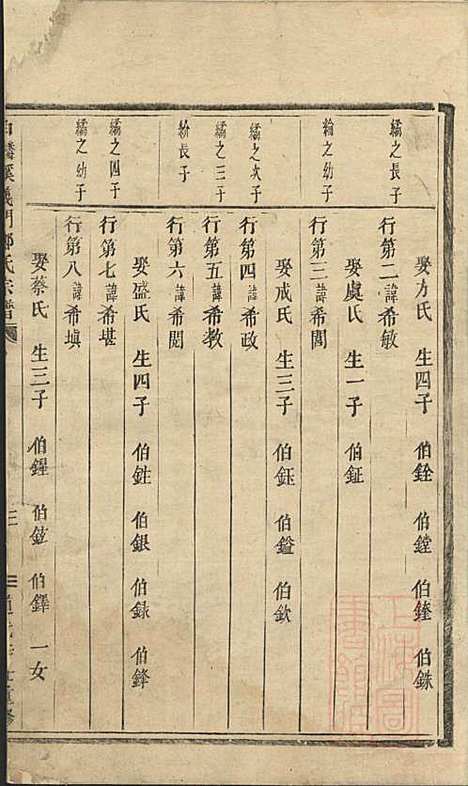 繘之長子
行第二諱希敏
娶方氏 生四子 伯銓 伯鏜 伯鏠 伯銖
綸之幼子
行第三諱希閶
娶虞氏 生一子 伯鉦
繘之次子
行第四諱希政
娶戒氏 生三子 伯鈺 伯鎰 伯欽
繘之三子
行第五諱希教
紛長子
行第六諱希閲
繘之四子
行第七諱希堪
娶盛氏 生四子 伯鉎 伯銀 伯錄 伯鋒
繘之幼子
行第八諱希塤
娶蔡氏 生三子 伯鍟 伯鉉 伯鐸 一女
麟溪義門鄭氏宗譜
三